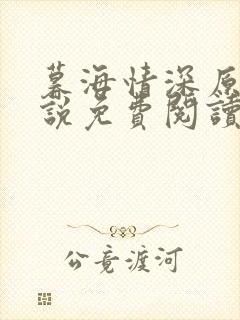 暮海情深原
說免費閱讀
公竟渡河